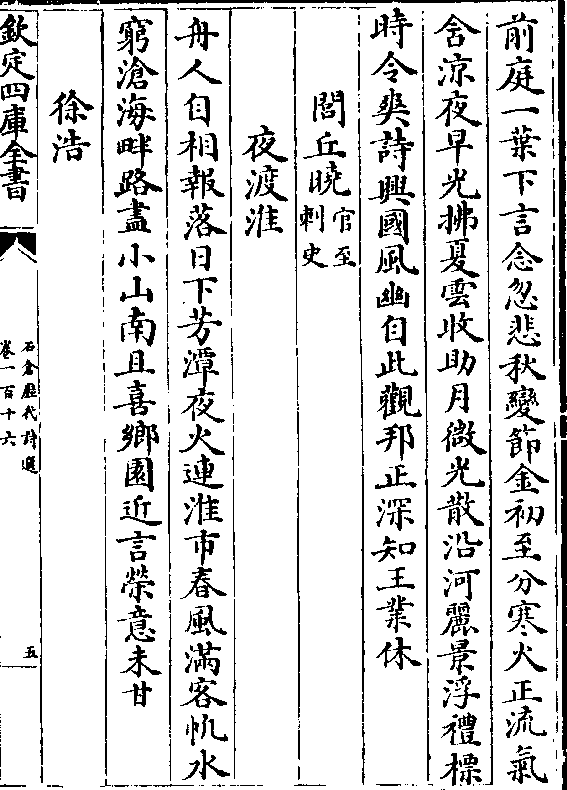 前庭一葉下言念忽悲秋變節金初至分寒火正流氣
舍涼夜早光拂夏雲收助月微光散沿河麗景浮禮標
時令爽詩興國風幽自此觀邦正深知王業休
閭丘曉官至刺史
夜渡淮
舟人自相報落日下芳潭夜火連淮市春風滿客帆水
窮滄海畔路盡小山南且喜鄉園近言榮意未甘
徐浩
欽定四庫全書
石倉歷代詩選
卷一百十六
五